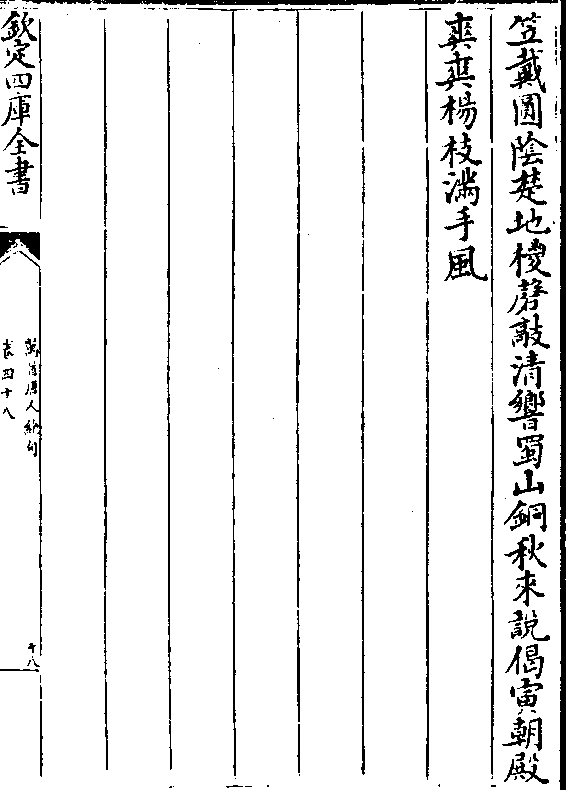 笠戴圓陰楚地椶磬敲清響蜀山銅秋來說偈寅朝殿
爽爽楊枝滿手風
欽定四庫全書
萬首唐人絶句
卷四十八
十八